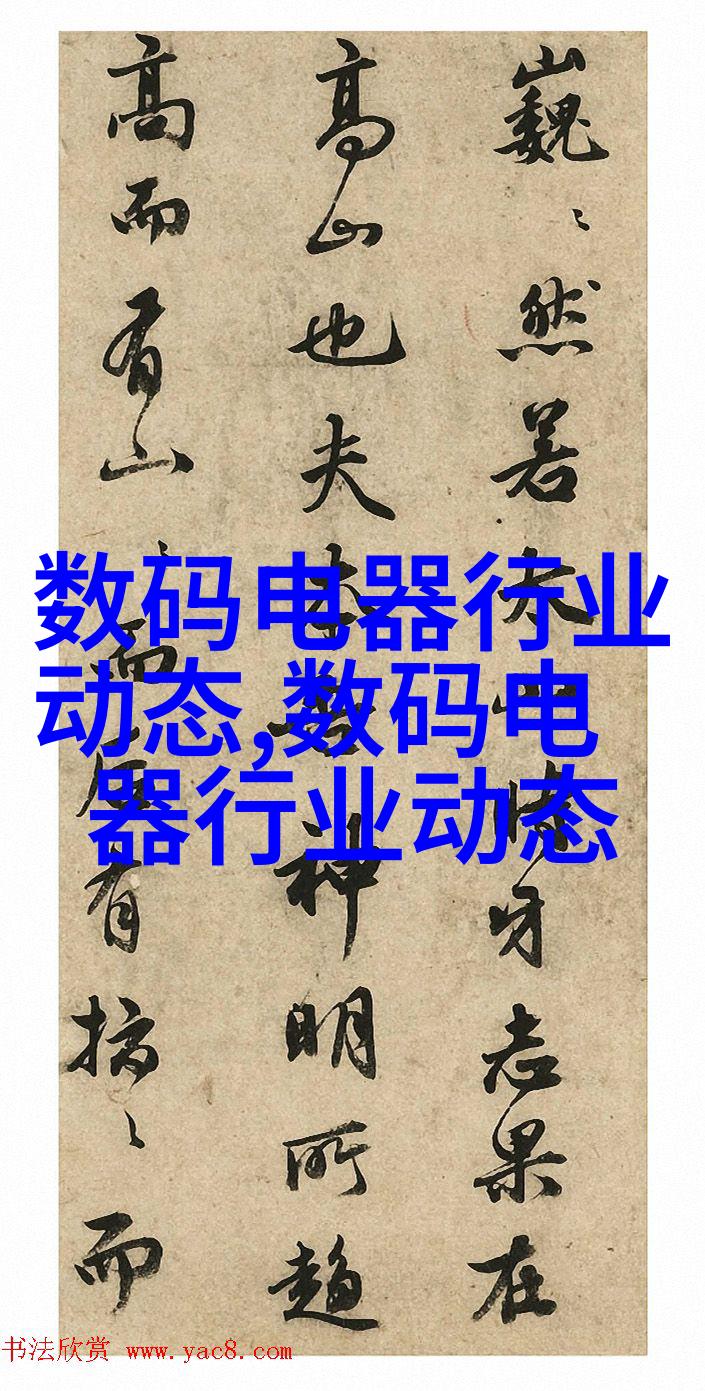 巍〻然若太山時牙志果在
高山也夫神明所趨
高而有山〻有〻而
数码电器行业
动态,数码电
器行业动态
书法欣赏 www.yac8.com